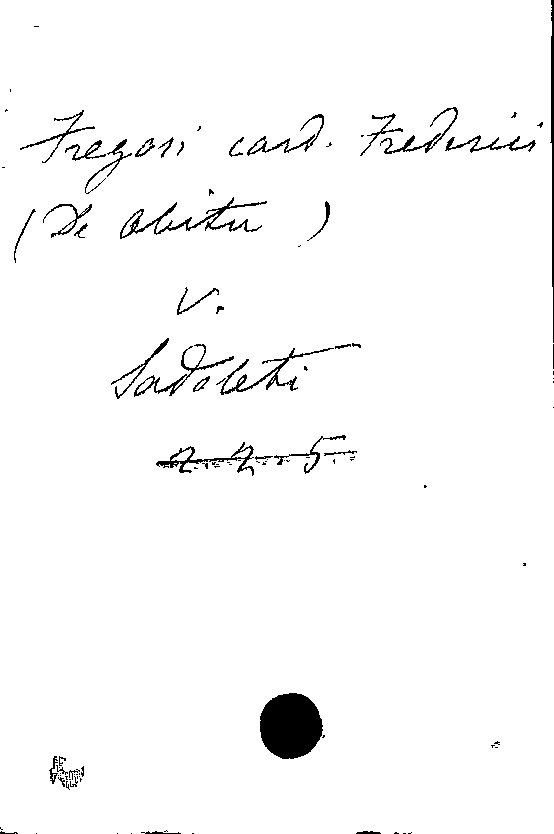 Fregosi card. Frederici
(De obitu)
V.
Sadoleti
Z. Z. 5.